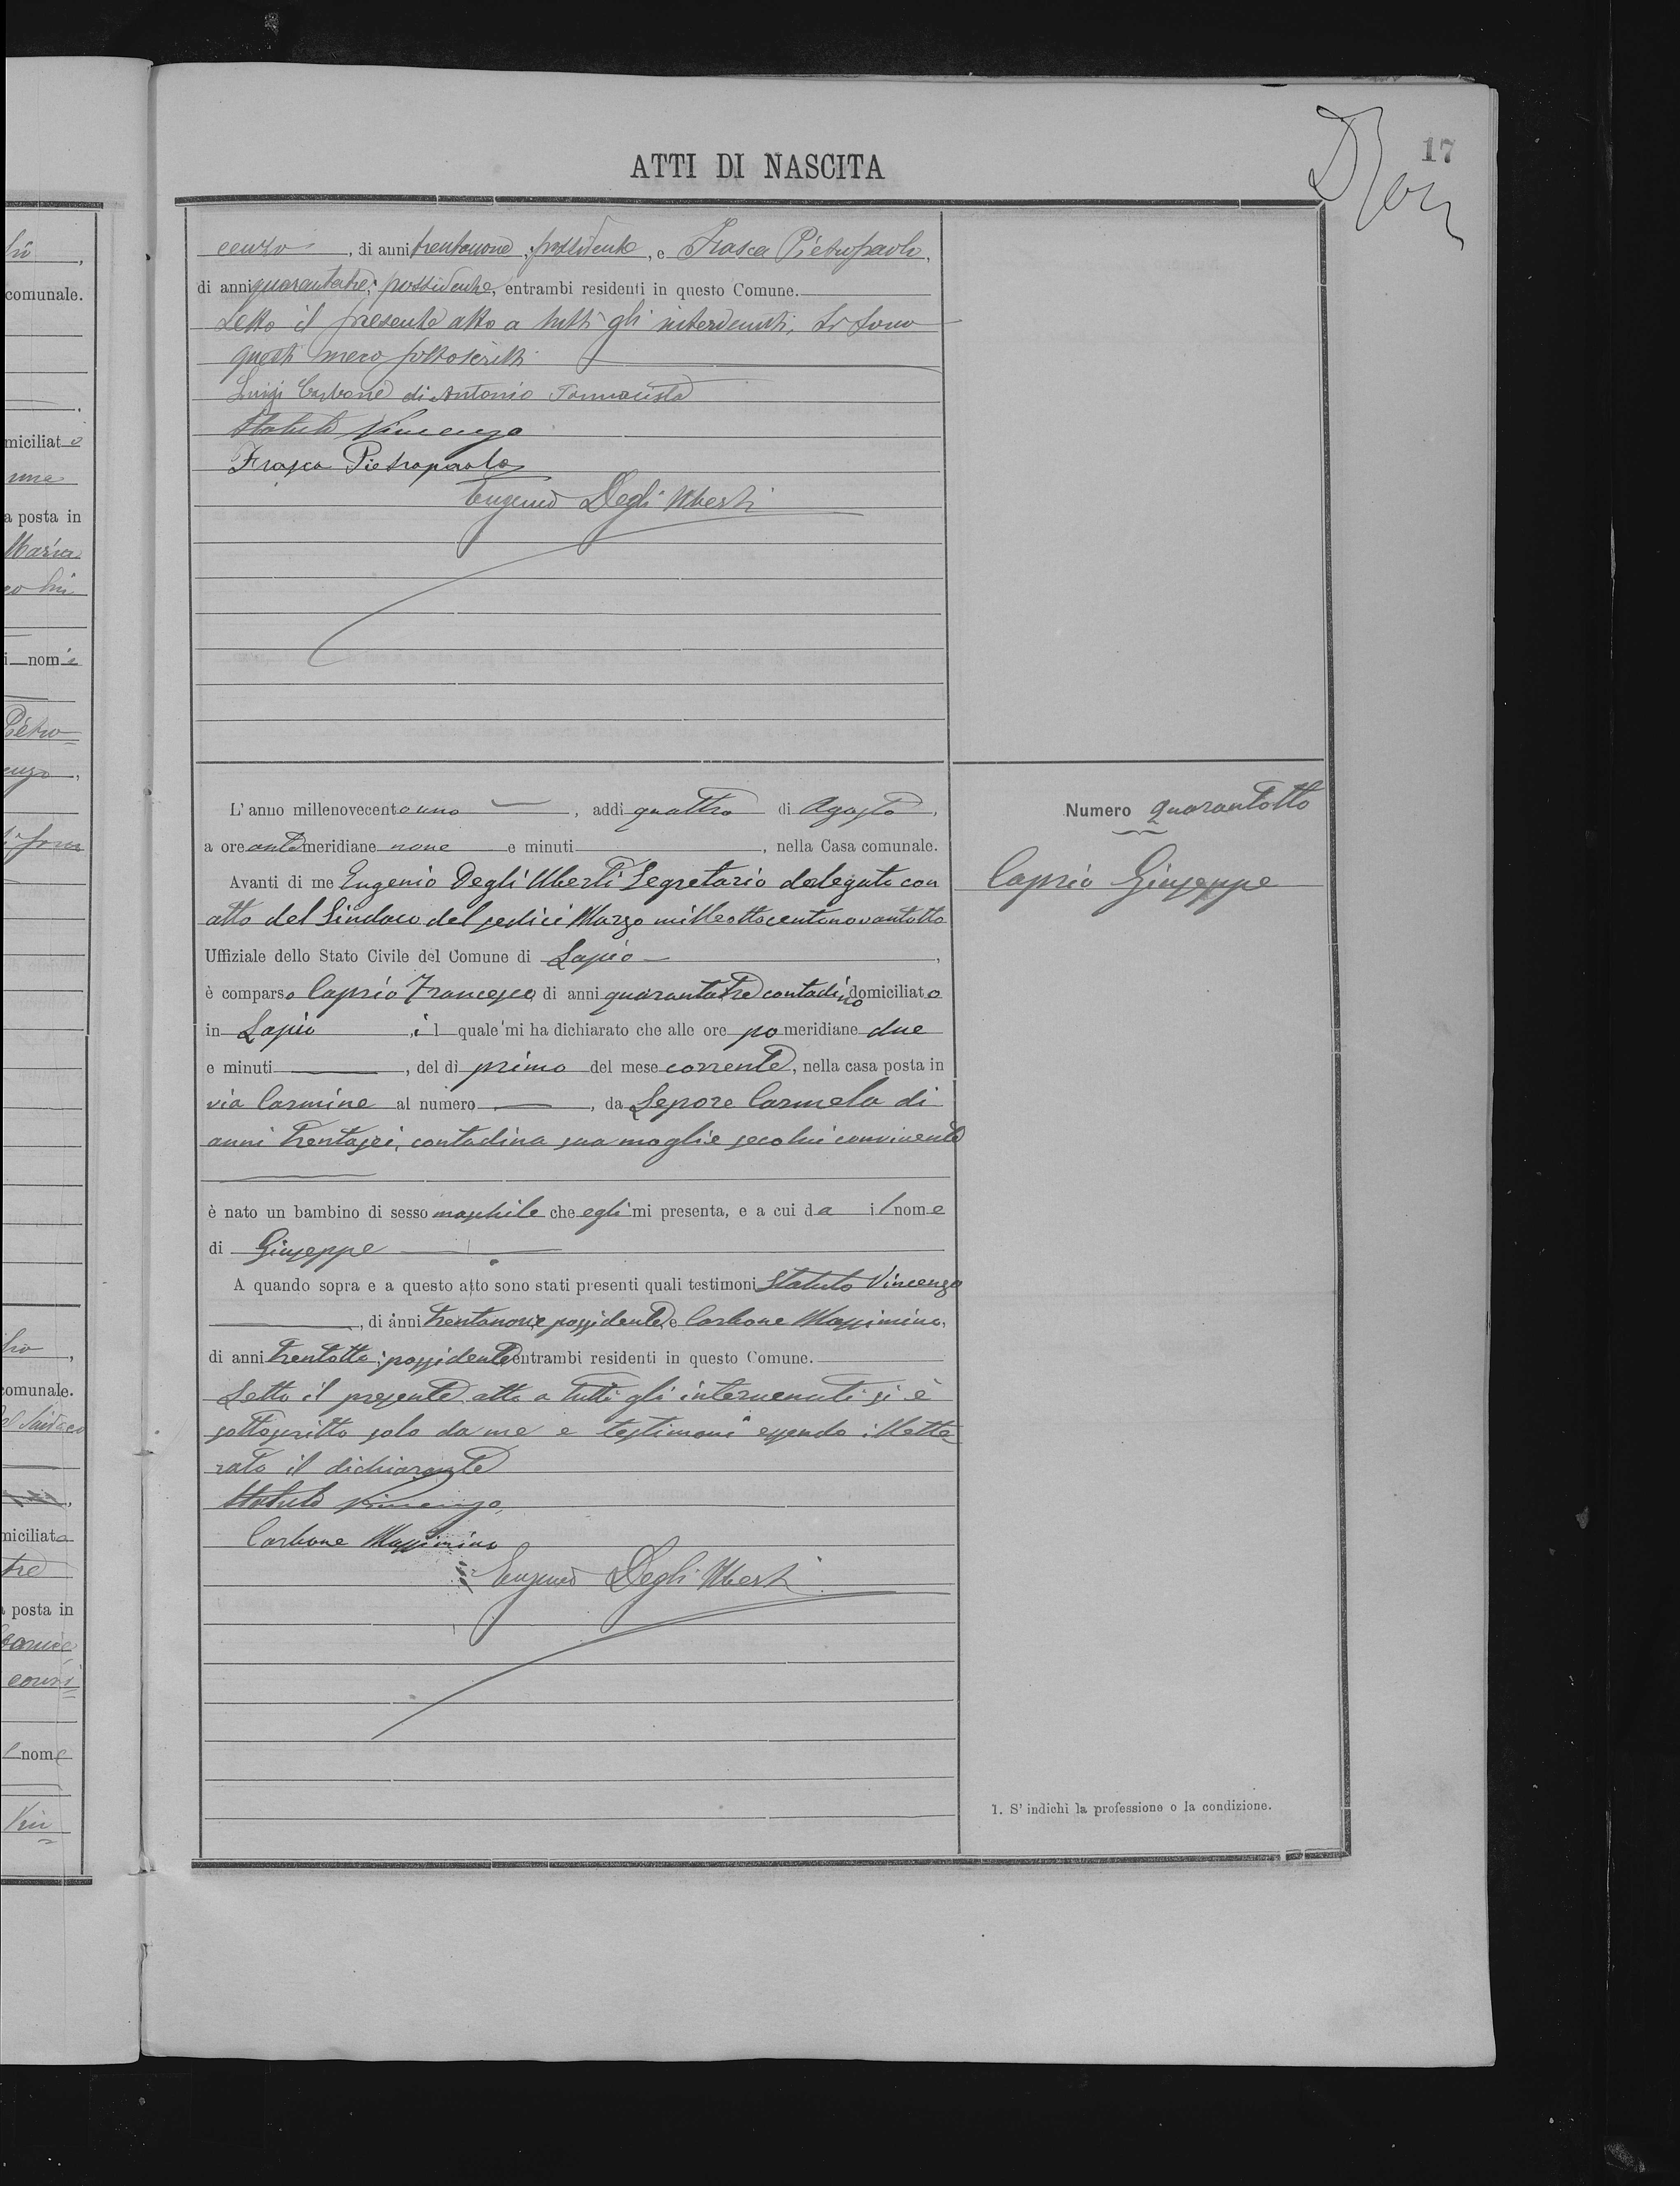 ATTI DI NASCITA
17
cenzo, di anni trentanove, possidente, e Frasca Pietropaolo,
di anni quarantatre, possidente, entrambi residenti in questo Comune.
Letto il presente atto a tutti gli intervenuti, si sono
questi meco sottoscritti
Luigi Carbone di Antonio Farmacista
Statuto Vincenzo
Frasca Pietropaolo
Eugenio Degli Uberti
L' anno millenovecentouno, addi quattro di Agosto,
a ore antemeridiane nove e minuti, nella Casa comunale.
Avanti di me Eugenio Degli Uberti Segretario delegato con
atto del Sindaco del sedici Marzo milleottocentonovantotto
Uffiziale dello Stato Civile del Comune di Lapio,
è comparso Caprio Francesco, di anni quarantatre contadino domiciliato
in Lapio, il quale mi ha dichiarato che alle ore pomeridiane due
e minuti, del dì primo del mese corrente, nella casa posta in
via Carmine al numero, da Lepore Carmela di
anni trentasei, contadina sua moglie seco lui convivente
è nato un bambino di sesso maschile che egli mi presenta, e a cui da il nome
di Giuseppe
A quando sopra e a questo atto sono stati presenti quali testimoni Statuto Vincenzo
, di anni trentanove possidente, e Carbone Massimino,
di anni trentotto, possidente entrambi residenti in questo Comune.
Letto il presente atto a tutti gli intervenuti si è
sottoscritto solo da me e testimoni essendo illette=
rato il dichiarante
Statuto Vincenzo,
Carbone Massimino
Eugenio Degli Uberti
Numero quarantotto
Caprio Giuseppe
1. S' indichi la professione o la condizione.
comunale.
miciliato
una
a posta in
Maria
co lui
i nome
Pietro=
enzo,
comunale.
del Sindaco
miciliata
tre
a posta in
convi=
l nome
Vin=